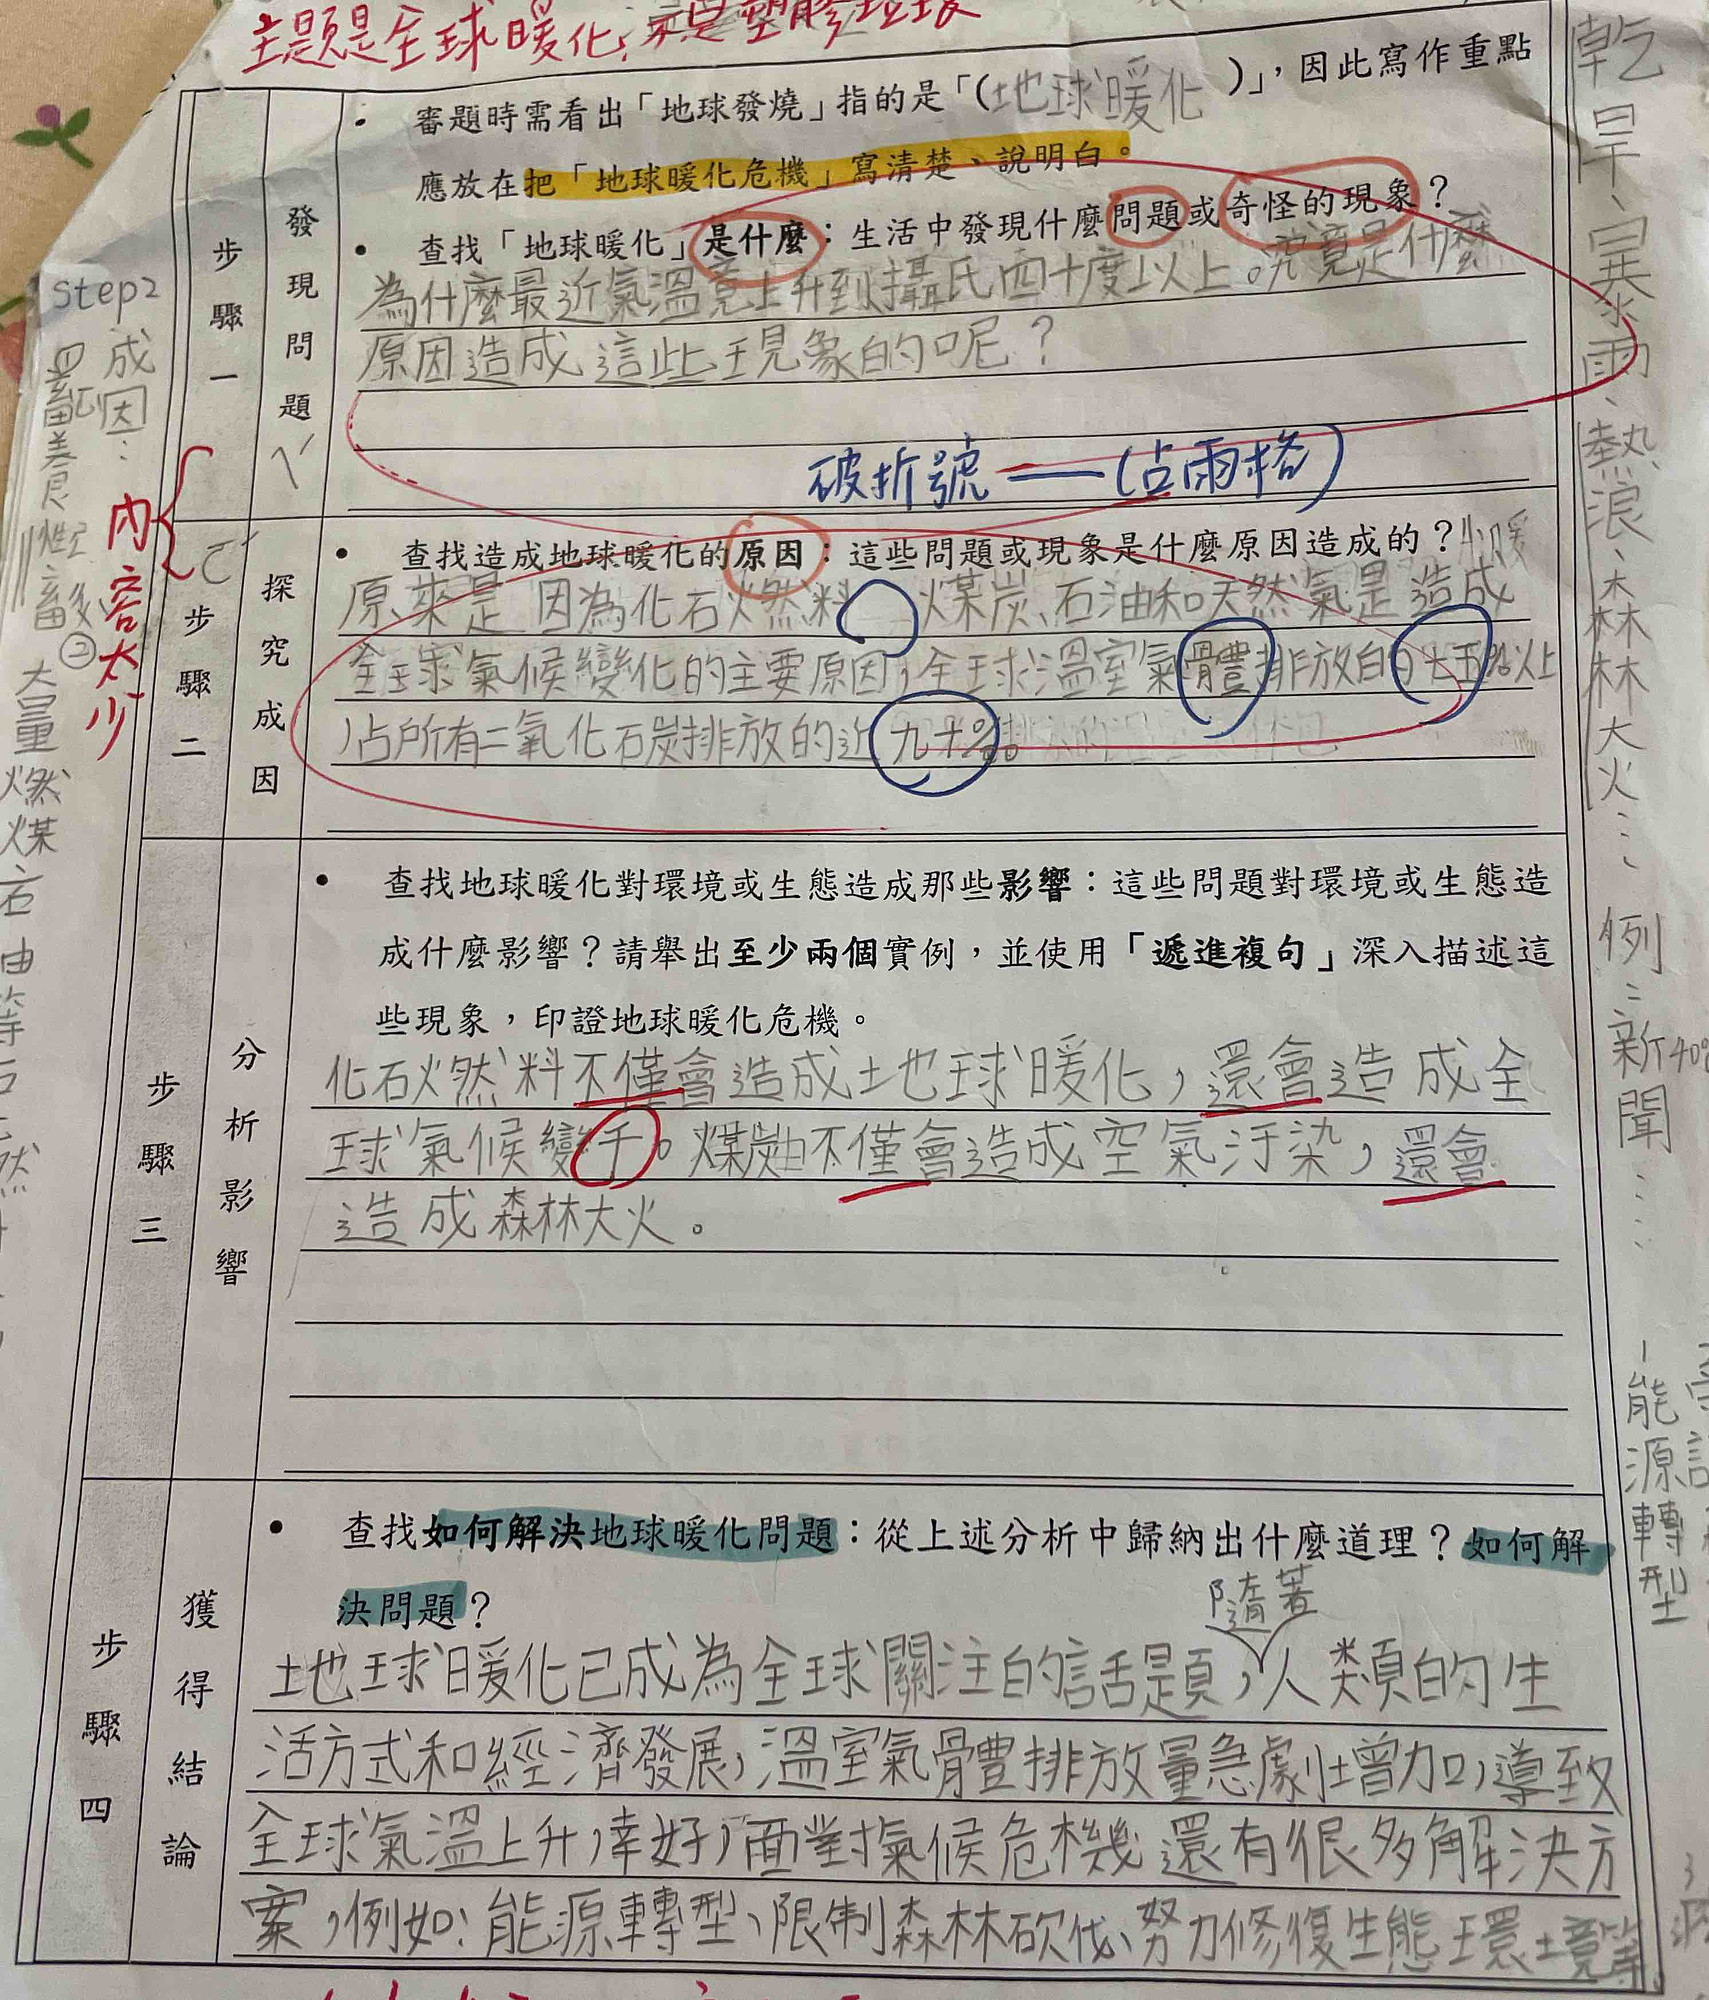 主題是全球暖化，不是塑膠垃圾
• 審題時需看出「地球發燒」指的是「(地球暖化)」，因此寫作重點
應放在把「地球暖化危機」寫清楚、說明白。
• 查找「地球暖化」是什麼：生活中發現什麼問題或奇怪的現象？
為什麼最近氣溫竟上升到攝氏四十度以上。究竟是什麼
原因造成這些現象的呢？
步驟一
發現問題
破折號——(占兩格)
• 查找造成地球暖化的原因：這些問題或現象是什麼原因造成的？
原來是因為化石燃料 煤炭、石油和天然氣是造成
全球氣候變化的主要原因，全球溫室氣體排放的七十五%以上
，占所有二氧化石炭排放的近九十%
步驟二
探究成因
內容太少
• 查找地球暖化對環境或生態造成那些影響：這些問題對環境或生態造
成什麼影響？請舉出至少兩個實例，並使用「遞進複句」深入描述這
些現象，印證地球暖化危機。
化石燃料不僅會造成地球暖化，還會造成全
球氣候變千。煤炭不僅會造成空氣汙染，還會
造成森林大火。
步驟三
分析影響
• 查找如何解決地球暖化問題：從上述分析中歸納出什麼道理？如何解
決問題？
隨著
地球暖化已成為全球關注的話題，人類的生
活方式和經濟發展，溫室氣體排放量急劇增加，導致
全球氣溫上升，幸好，面對氣候危機還有很多解決方
案，例如：能源轉型、限制森林砍伐、努力修復生態環境等
步驟四
獲得結論
step2
成因：
畜養牲畜
②大量燃煤
乾旱、暴雨、熱浪、森林大火……
例：新聞……
能源轉型